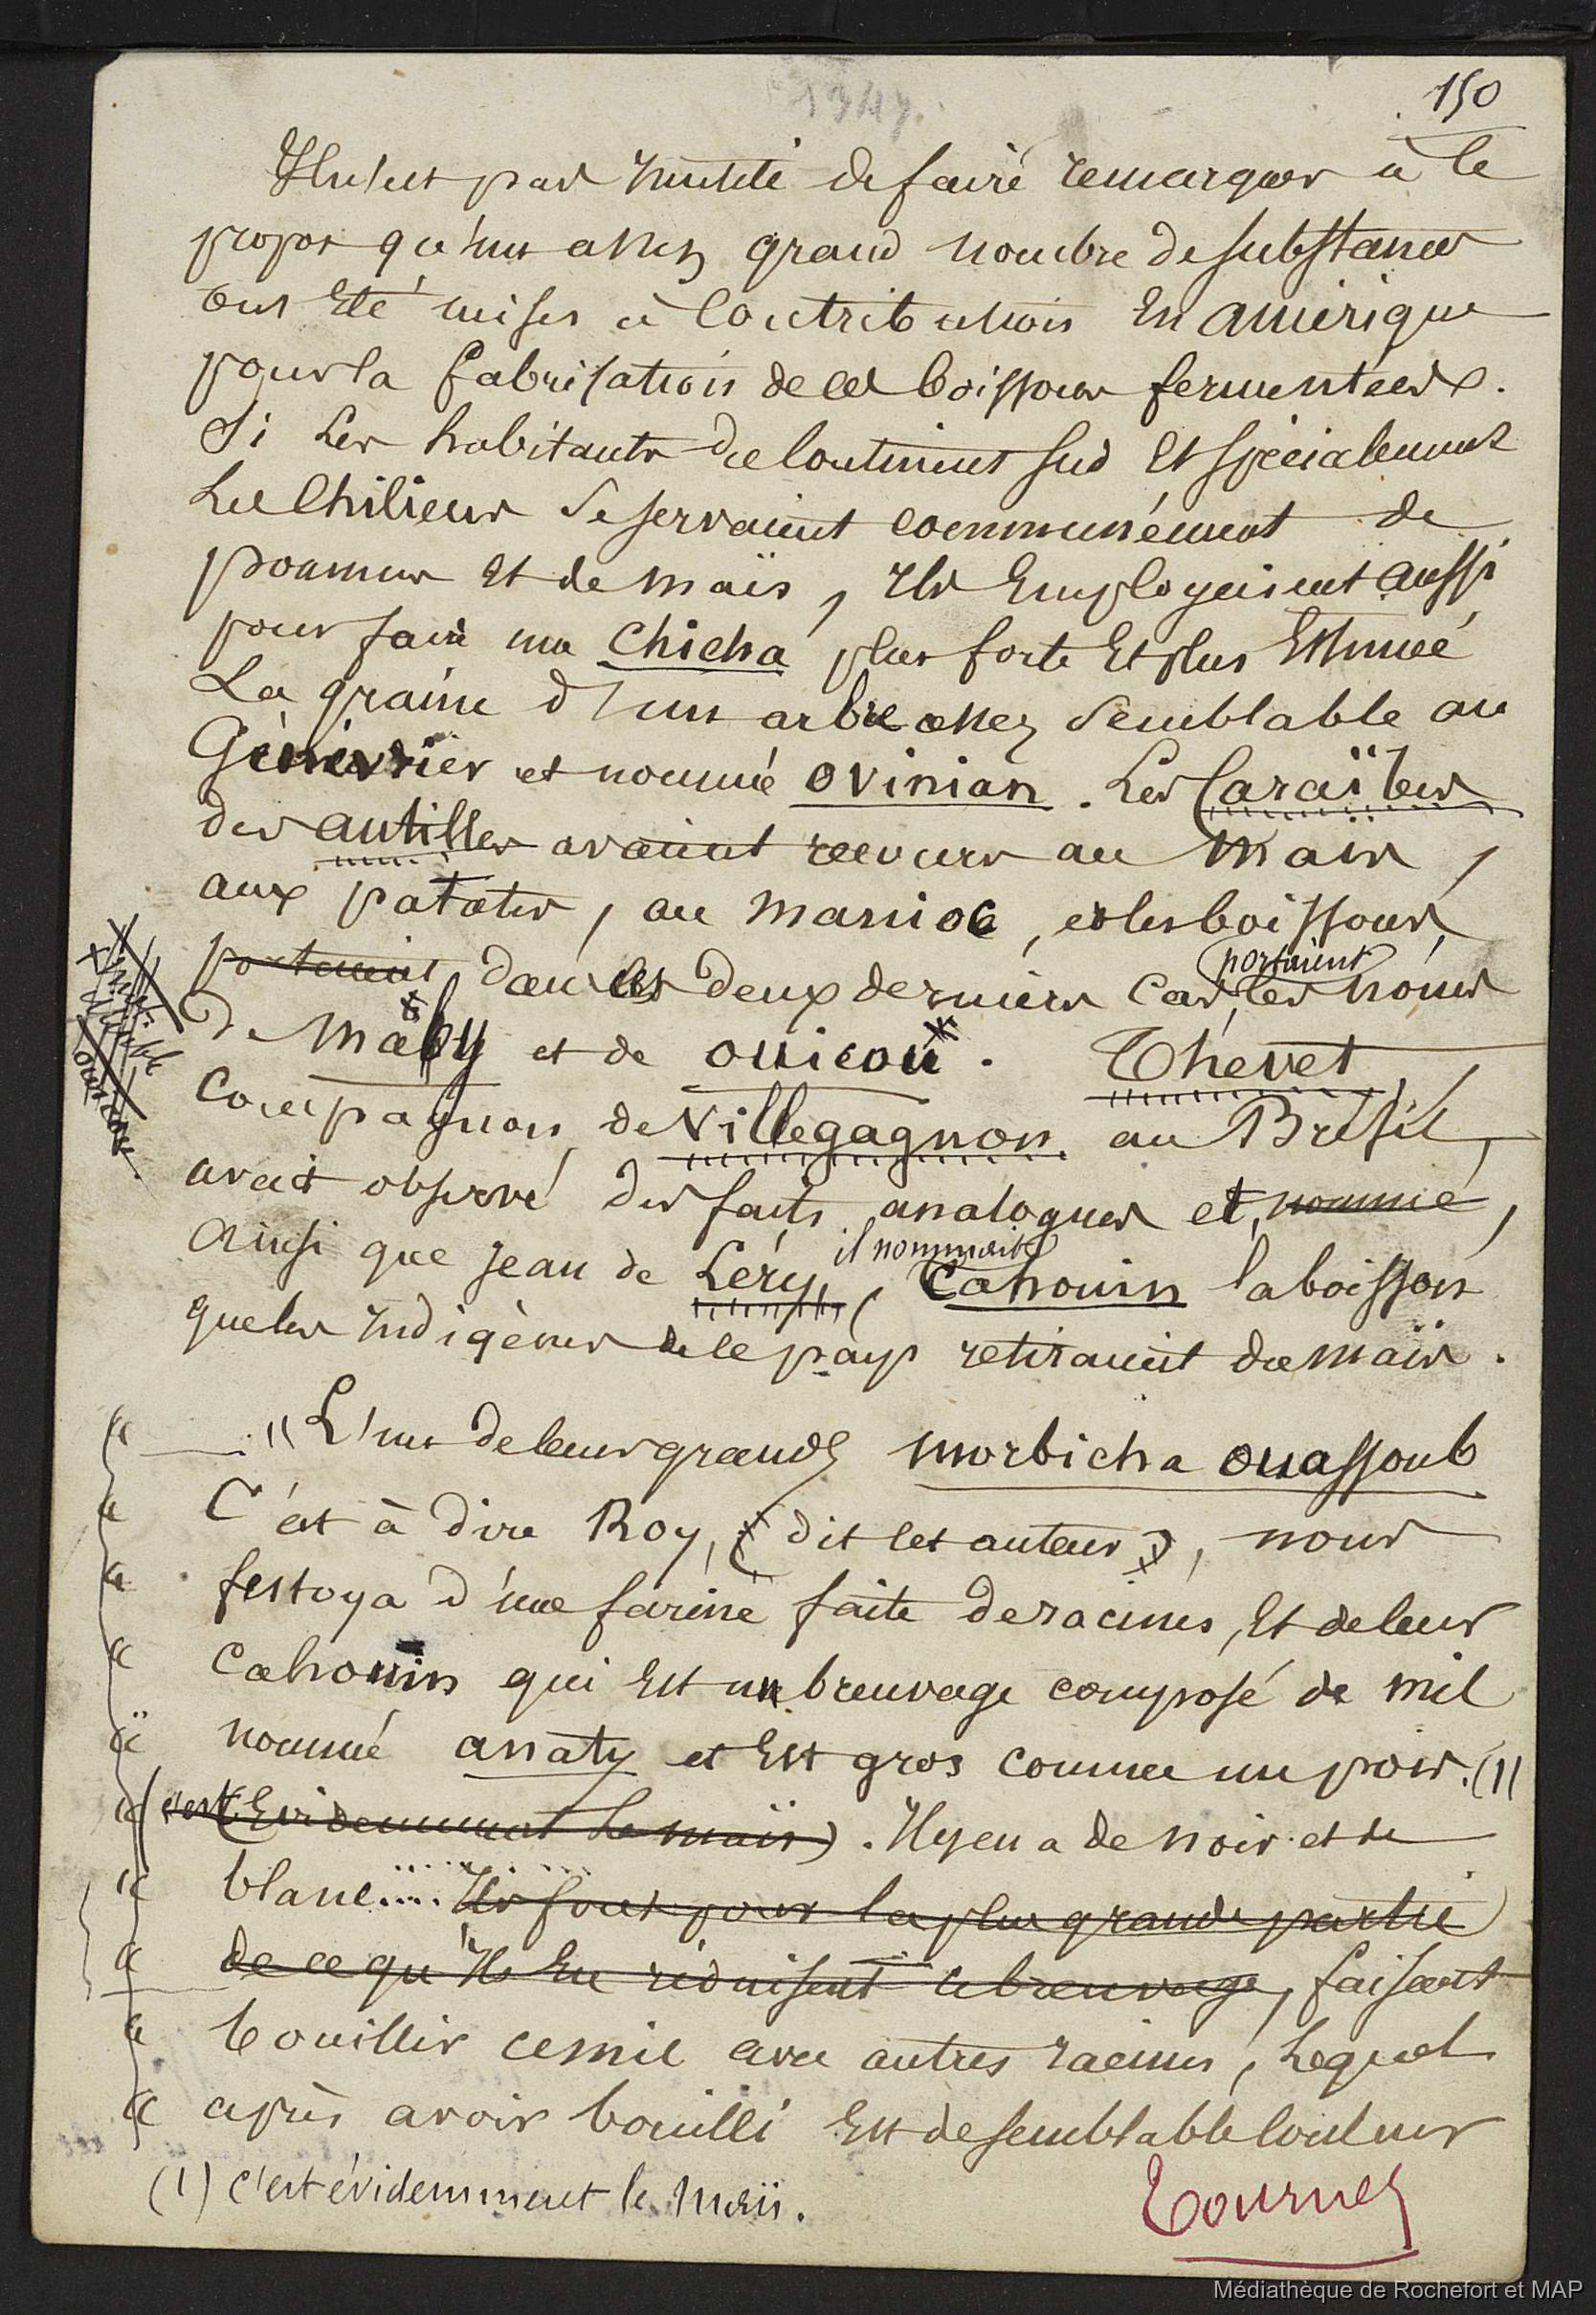 150
Il n'est pas inutile de faire remarquer à ce
propos qu'un assez grand nombre de substances
ont été mises à contribution en amérique
pour la fabrication de ces boissons fermentées.
Si les habitants du continent sud et spécialement
les Chiliens se servaient communément de
pommes et de maïs, ils employaient aussi
pour faire une chicha plus forte et plus estimée
La graine d'un arbre assez semblable au
Génévrier et nommé ovinian. Les Caraïbes
des antilles avaient recours au maïs,
aux patates, au manioc, et les boissons,
portaient dans les deux derniers cas, portaient les noms
de Maby et de ouicou. Thevet,
Compagnon de Villegagnon au Brésil,
avait observé des faits analogues et, nommé,
Ainsi que Jean de Léry, il nommait Cahouin la boisson
que les indigènes de ce pays retiraient du maïs.
"L'un de leurs grands morbicha ouassoub
C'est à dire Roy, (dit cet auteur), nous
festoya d'une farine faite de racines, et de leur
Cahouin qui est un breuvage composé de mil
nommé anaty et est gros comme un pois. (1)
(c'est Evidemment le maïs). Il y en a de noir et de
blanc.... Ils font pour la plus grande partie
de ce qu'ils en réduisent ce breuvage, faisant
bouillir ce mil avec autres racines, lequel
après avoir bouilli est de semblable couleur
(1) c'est évidemment le maïs.
Tournez
Médiathèque de Rochefort et MAP